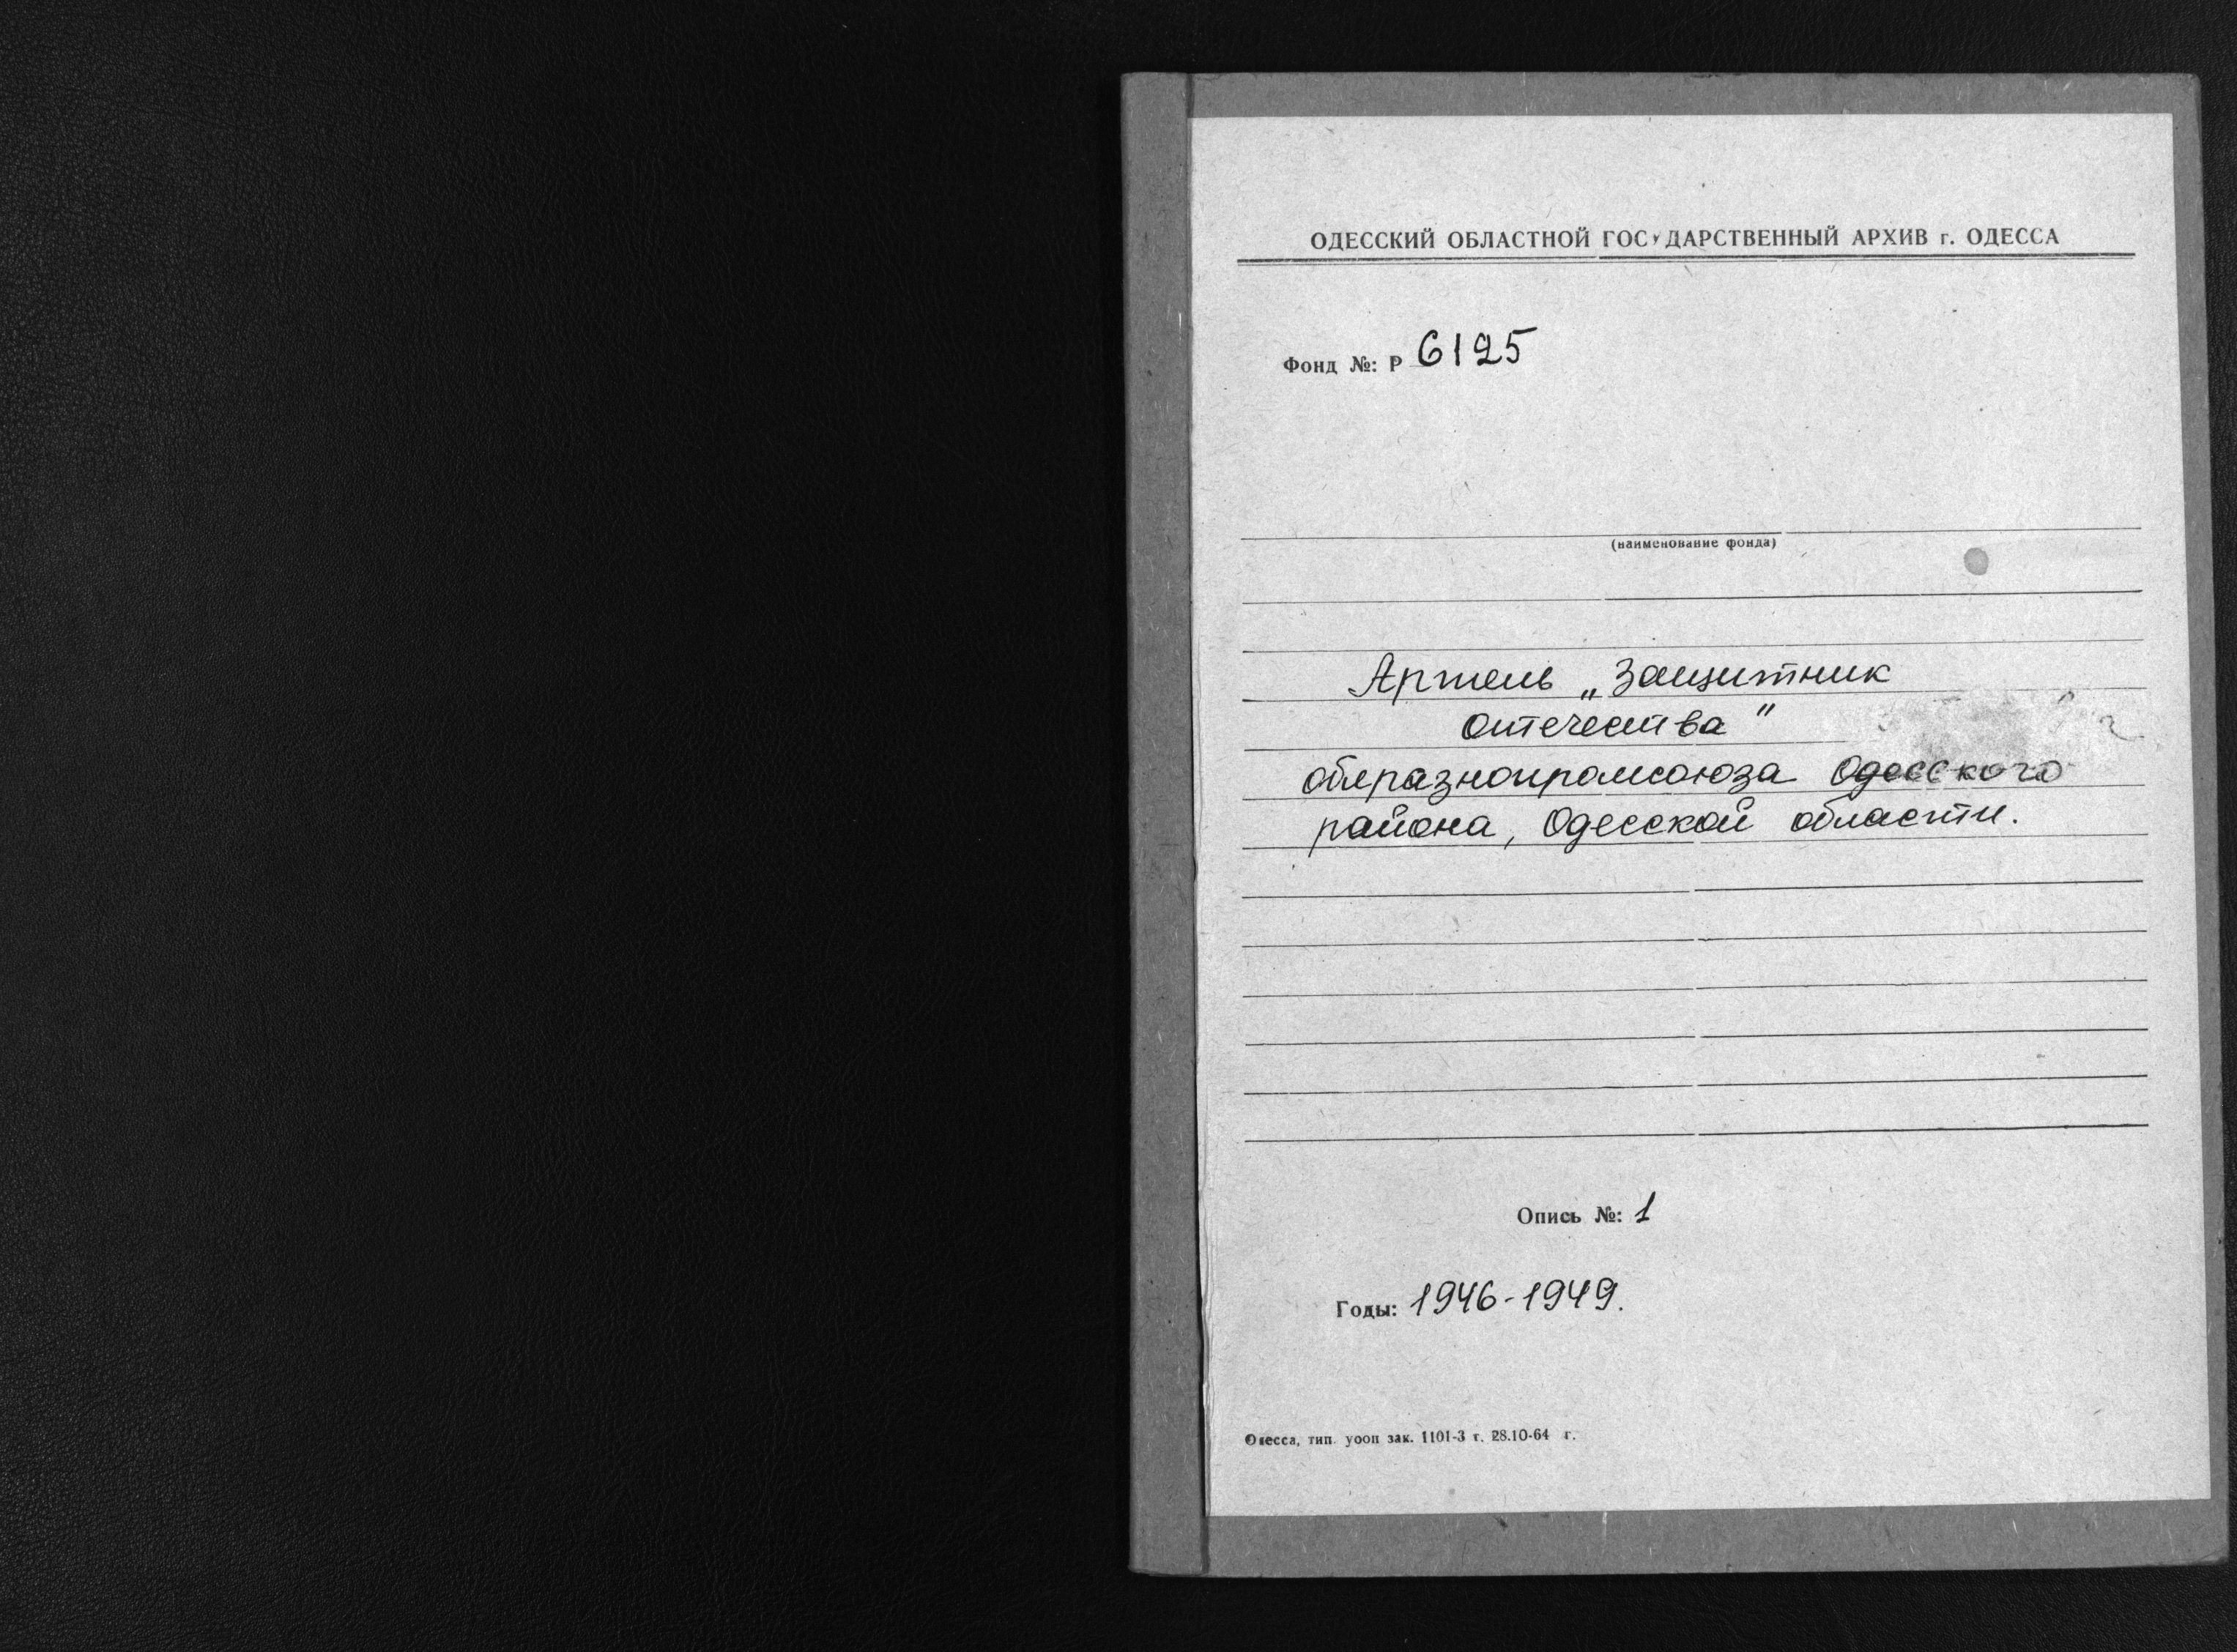 ОДЕССКИЙ ОБЛАСТНОЙ ГОСУДАРСТВЕННЫЙ АРХИВ г. ОДЕССА
Фонд №: Р 6125
(наименование фонда)
Артель „Защитник
Отечества"
облразнопромсоюза Одесского
района, Одесской области.
Опись №: 1
Годы: 1946-1949.
Одесса, тип. уооп зак. 1101-3 т. 28.10-64 г.